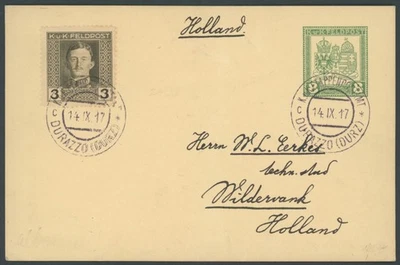 Holland.
K.u.K. FELDPOST
3 3
14 IX. 17
C DURAZZO (DURZ) *
K.u.K. FELDPOST
8 8
14 IX. 17
C DURAZZO (DURZ) *
Herrn W. L. Eerkes
techn. stud
Wildervank
Holland